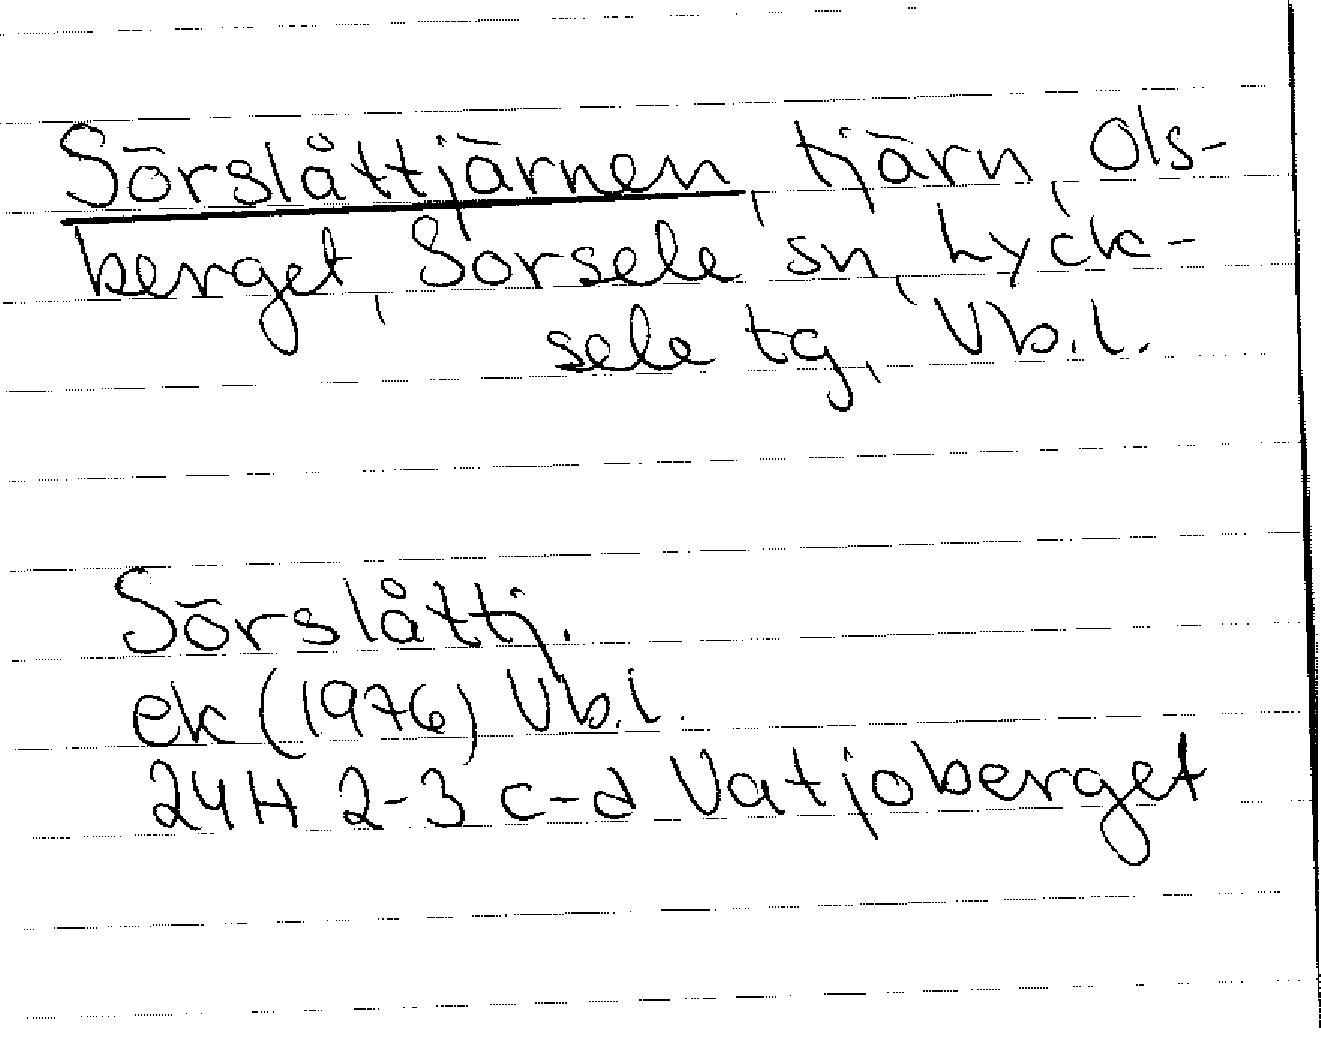 Sörslåttjärnen, tjärn, Ols-
berget, Sorsele sn, Lyck-
sele tg, Vb.l.
Sörslåttj.
ek (1976) Vb.l.
24H 2-3 c-d Vatjoberget